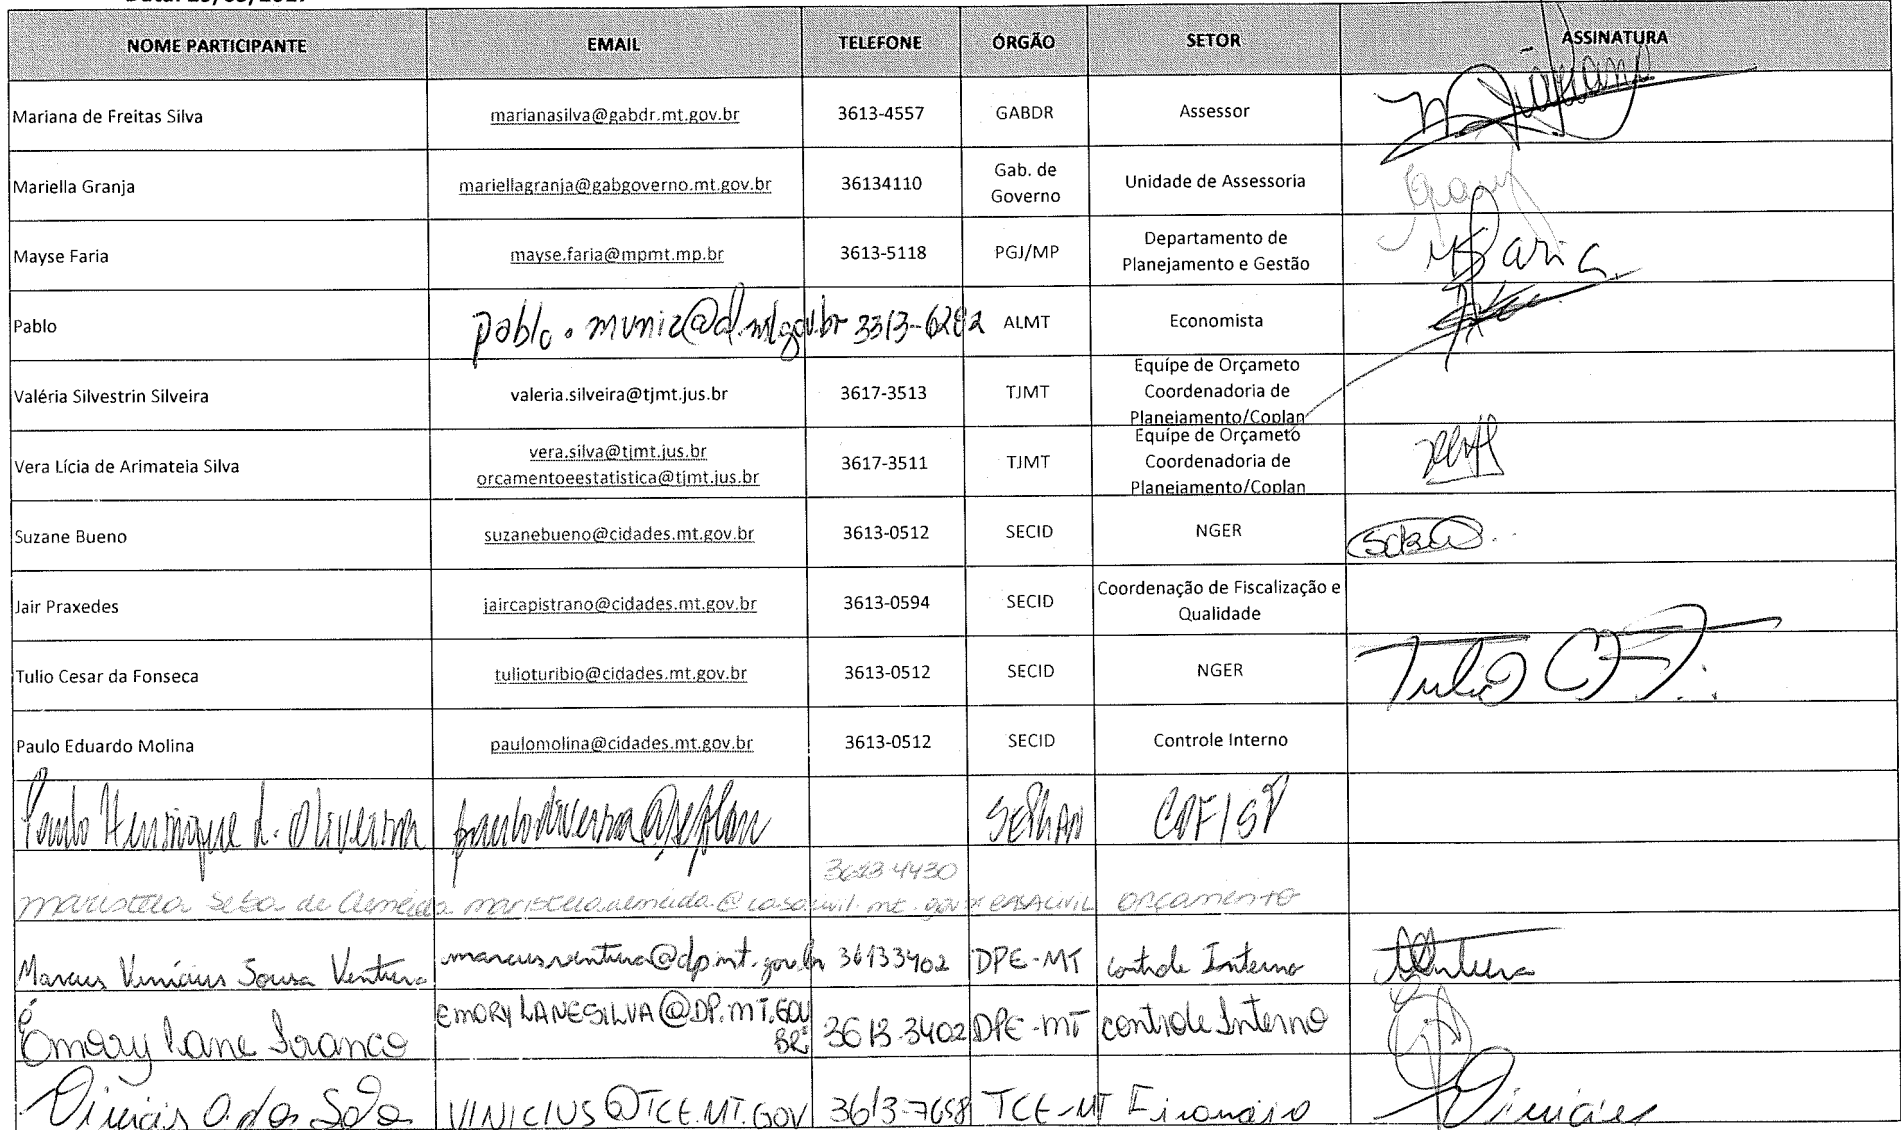 NOME PARTICIPANTE EMAIL TELEFONE ÓRGÃO SETOR ASSINATURA
Mariana de Freitas Silva marianasilva@gabdr.mt.gov.br 3613-4557 GABDR Assessor
Mariella Granja mariellagranja@gabgoverno.mt.gov.br 36134110 Gab. de Governo Unidade de Assessoria
Mayse Faria mayse.faria@mpmt.mp.br 3613-5118 PGJ/MP Departamento de Planejamento e Gestão Faria
Pablo 3313-6282 ALMT Economista
Valéria Silvestrin Silveira valeria.silveira@tjmt.jus.br 3617-3513 TJMT Equípe de Orçameto Coordenadoria de Planejamento/Coplan
Vera Lícia de Arimateia Silva vera.silva@tjmt.jus.br orcamentoeestatistica@tjmt.jus.br 3617-3511 TJMT Equípe de Orçameto Coordenadoria de Planejamento/Coplan
Suzane Bueno suzanebueno@cidades.mt.gov.br 3613-0512 SECID NGER
Jair Praxedes jaircapistrano@cidades.mt.gov.br 3613-0594 SECID Coordenação de Fiscalização e Qualidade
Tulio Cesar da Fonseca tulioturibio@cidades.mt.gov.br 3613-0512 SECID NGER Tulio
Paulo Eduardo Molina paulomolina@cidades.mt.gov.br 3613-0512 SECID Controle Interno
Paulo Henrique d. Oliveira SEPLAN
3623-4430
maristela Seba de Almeida maristela.almeida@casacivil.mt.gov.br CASACIVIL orçamento
Marcus Vinícius Sousa Ventura marcusventura@dp.mt.gov.br 36133402 DPE-MT controle Interno Ventura
Émory Lane Franco EMORYLANESILVA@DP.MT.GOV BR 3613-3402 DPE-MT controle Interno
VINICIUS@TCE.MT.GOV 3613-7658 TCE-MT Vinicius